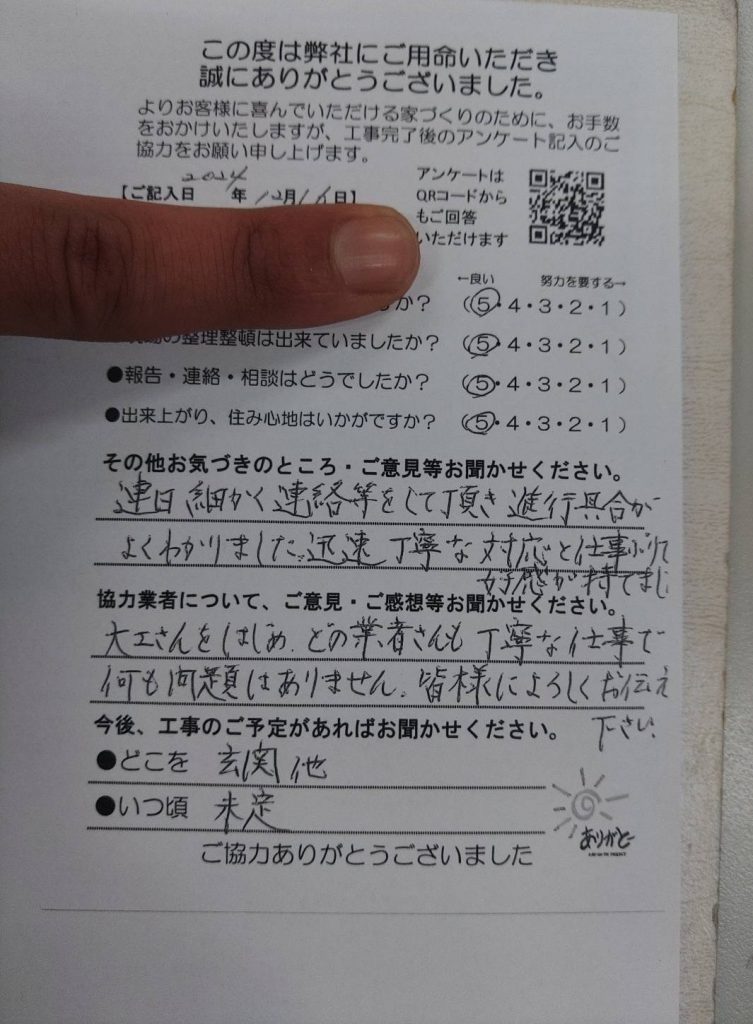 この度は弊社にご用命いただき
誠にありがとうございました。
よりお客様に喜んでいただける家づくりのために、お手数
をおかけいたしますが、工事完了後のアンケート記入のご
協力をお願い申し上げます。
【ご記入日 2024年 12月16日】
アンケートは
QRコードから
もご回答
いただけます
←良い 努力を要する→
か? (5・4・3・2・1)
の整理整頓は出来ていましたか? (5・4・3・2・1)
●報告・連絡・相談はどうでしたか? (5・4・3・2・1)
●出来上がり、住み心地はいかがですか? (5・4・3・2・1)
その他お気づきのところ・ご意見等お聞かせください。
連日細かく連絡等をして頂き進行具合が
よくわかりました。迅速丁寧な対応と仕事ぶりで
好感が持てまし
協力業者について、ご意見・ご感想等お聞かせください。
大工さんをはじめ、どの業者さんも丁寧な仕事で
何も問題はありません。皆様によろしくお伝え
下さい
今後、工事のご予定があればお聞かせください。
●どこを 玄関他
●いつ頃 未定
ありがとー
ご協力ありがとうございました